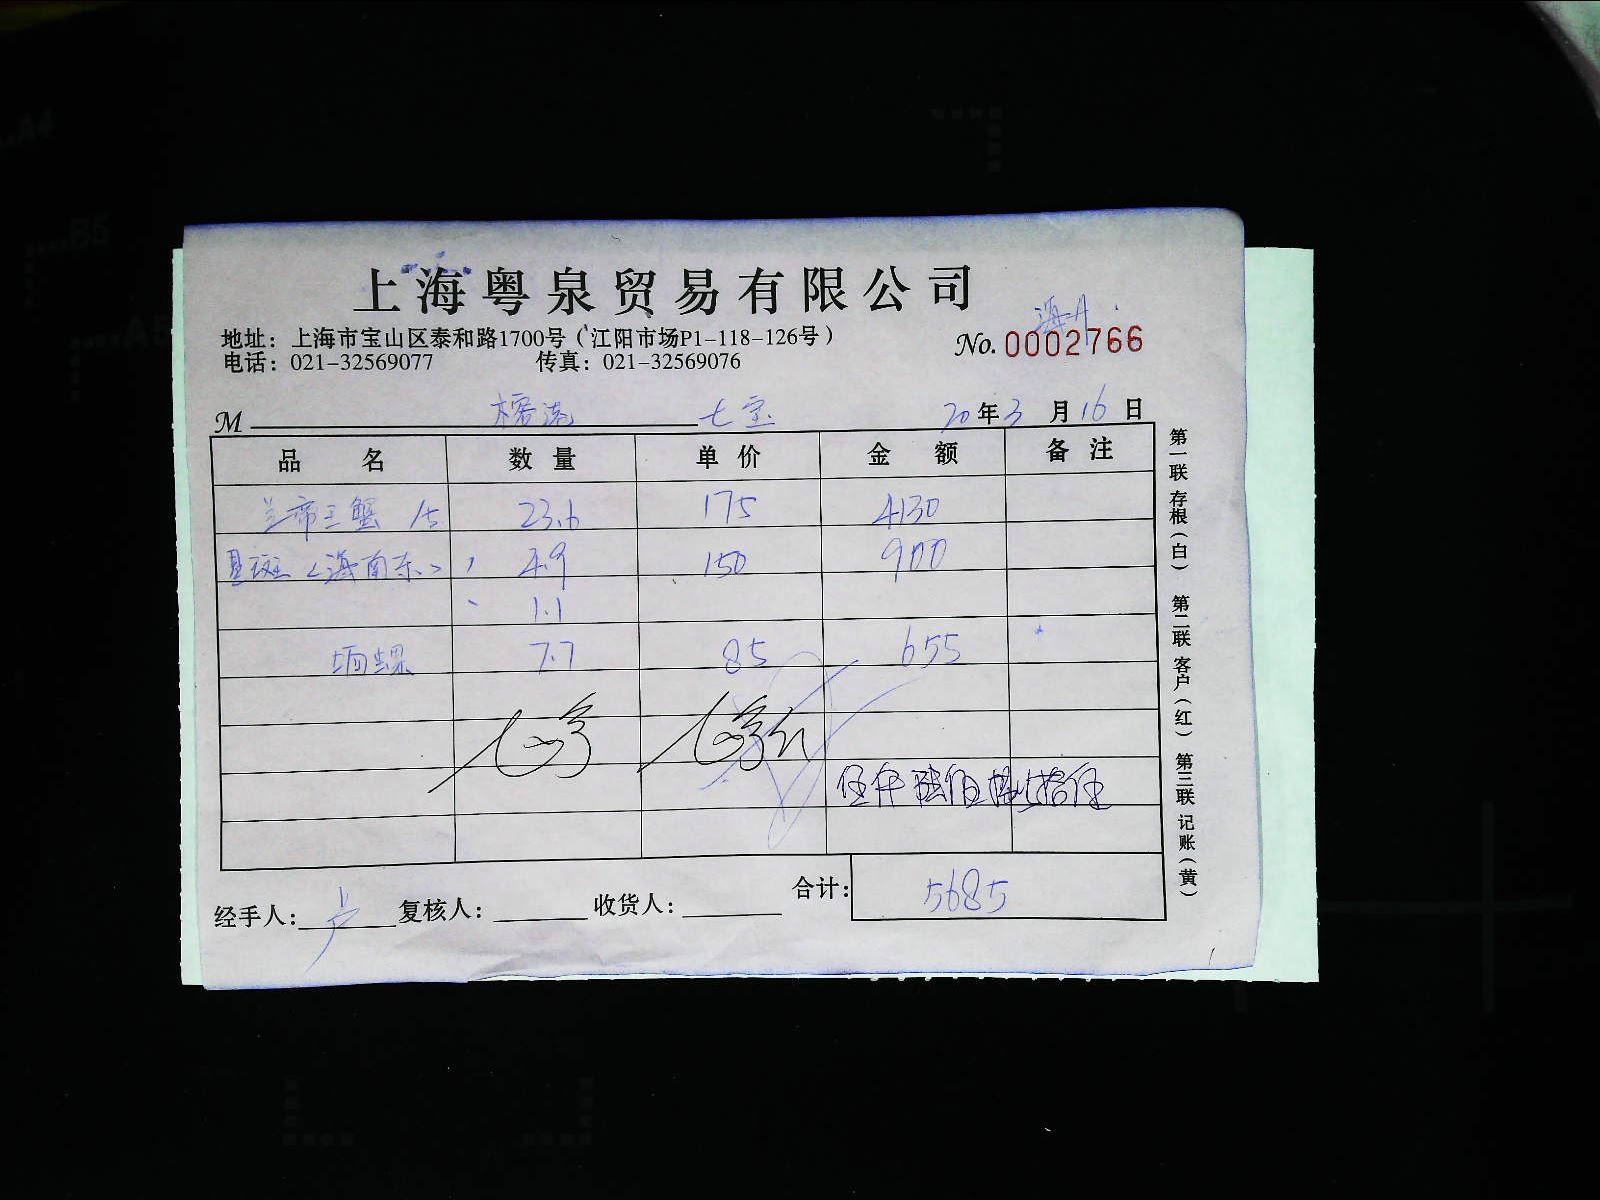 上海粤泉贸易有限公司
地址：上海市宝山区泰和路1700号（江阳市场P1-118-126号）
海A
No. 0002766
电话：021-32569077 传真：021-32569076
M 榕港 七宝 20年3月16日
品名 数量 单价 金额 备注
兰帝王蟹 23.6 175 4130
斑<海南东> 4.9 150 900
1.1
响螺 7.7 85 655
伍仟陆佰捌拾伍
合计： 5685
经手人： 卢 复核人： 收货人：
第一联 存根（白） 第二联 客户（红） 第三联 记账（黄）